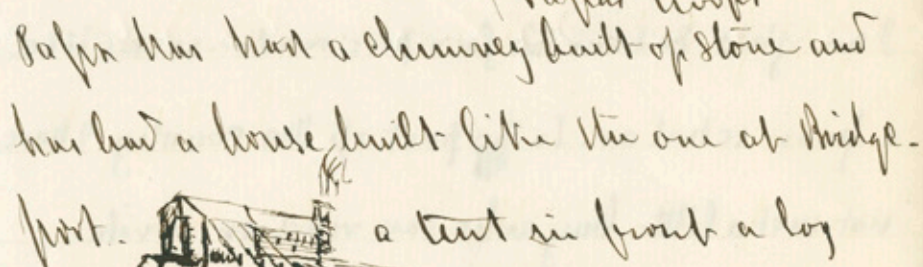 Papa has had a chimney built of stone and
has had a house built like the one at Bridge-
port. a tent in front a log